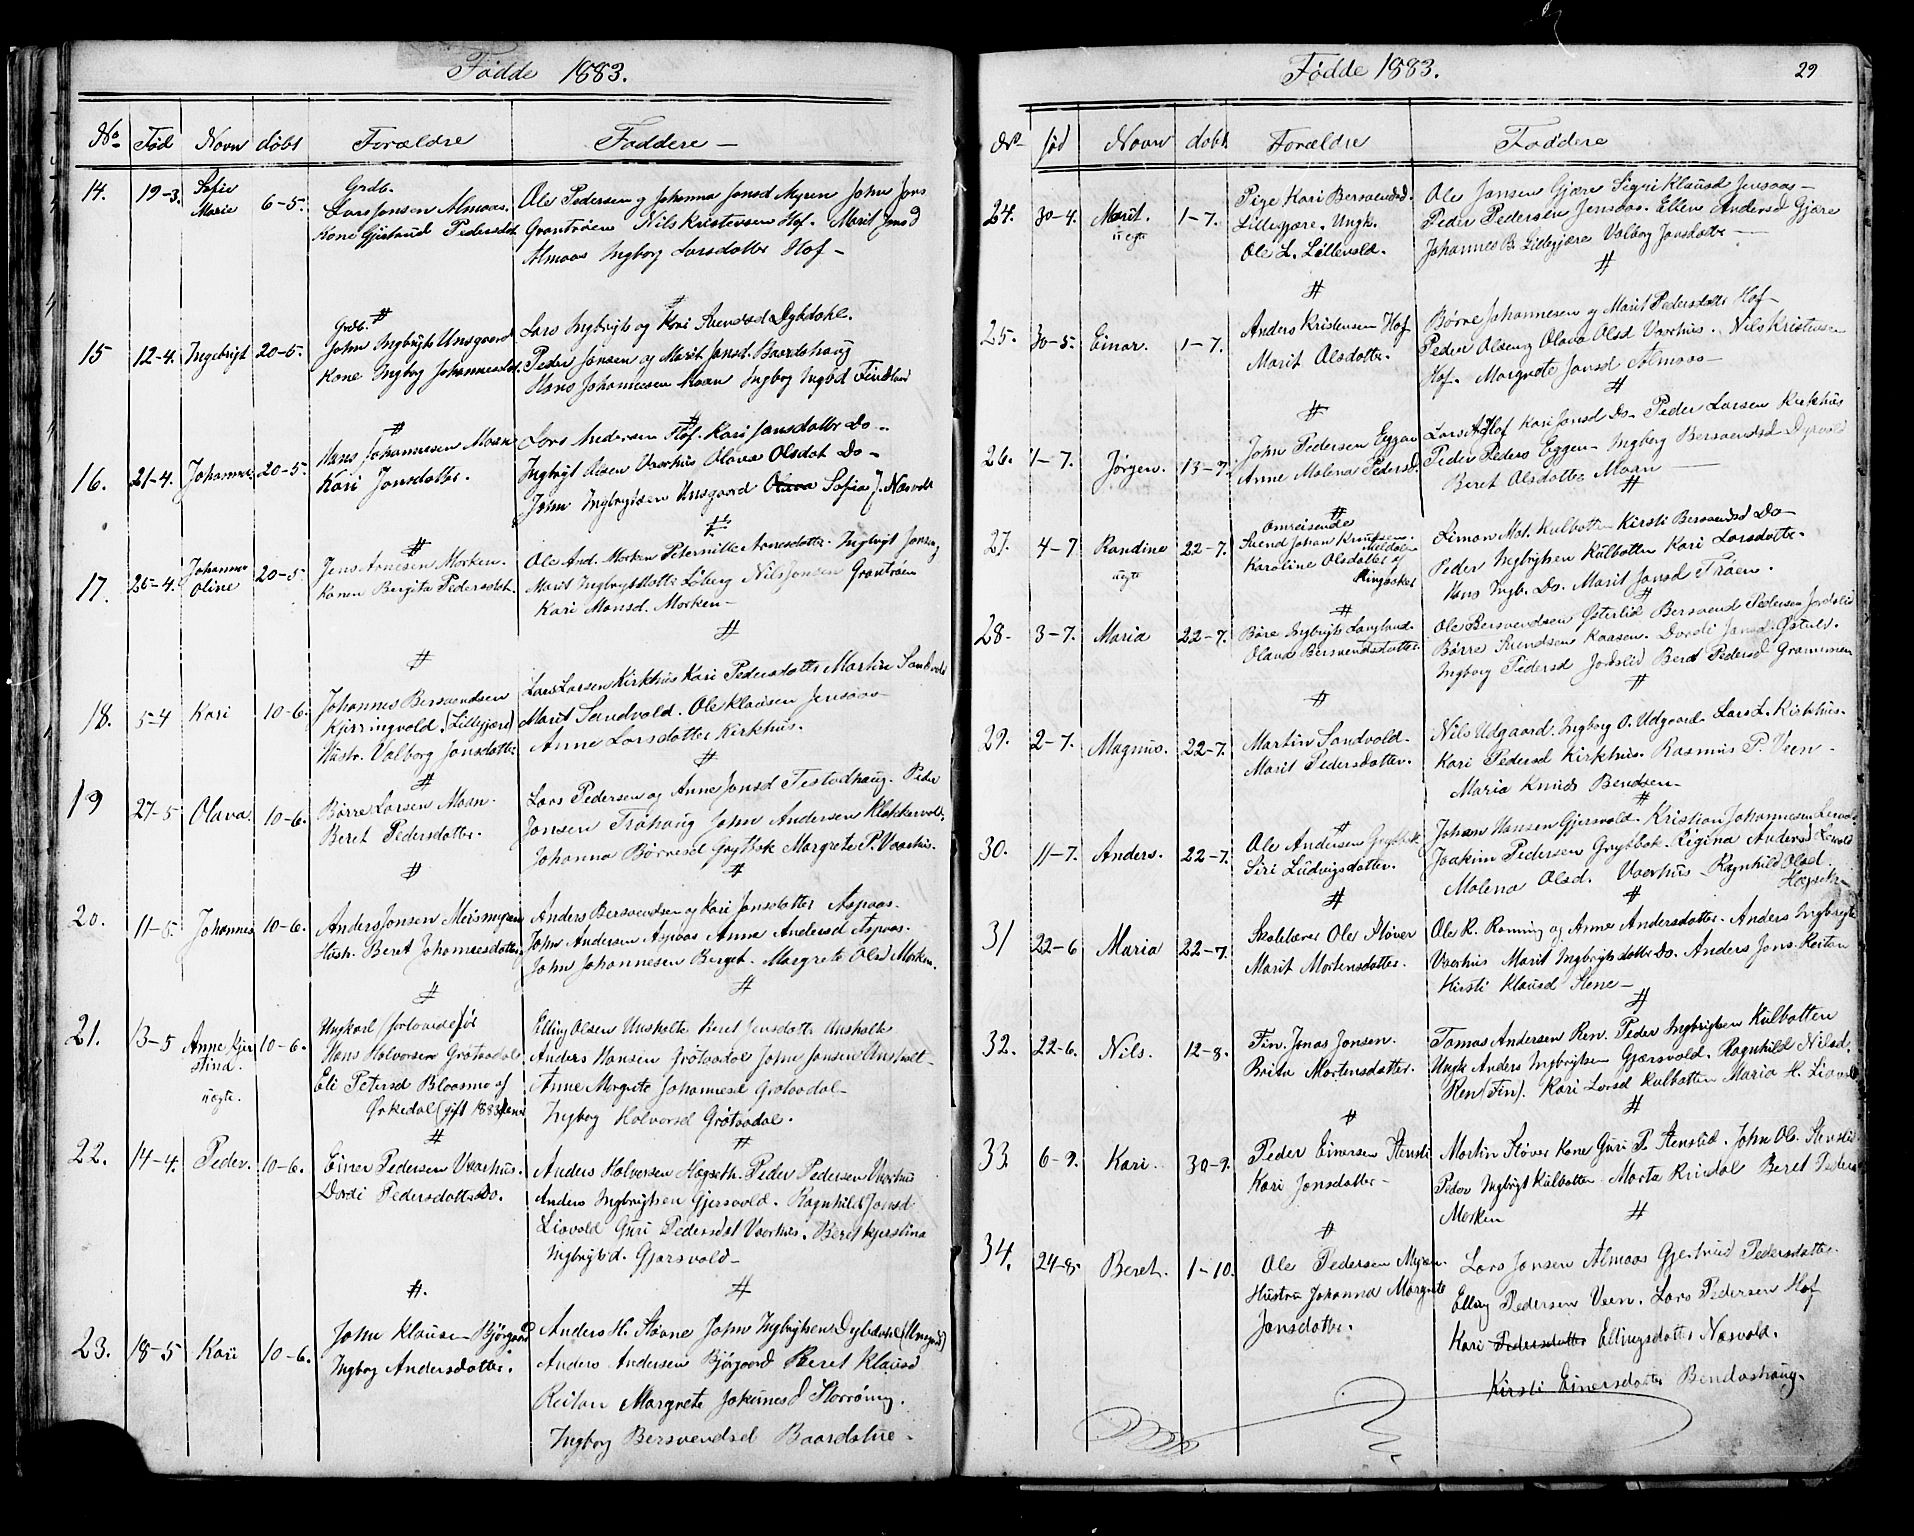 Fødde 1883.
No Fød Navn døbt Forældre Faddere —
14. 19-3. Sofie Marie 6-5. Grdb. Lars Jonsen Almaas. Kone Gjertrud Pedersdat.
Ole Pedersen og Johanna Jonsd Myren John Jons
Grøntrøen Nils Kristensen Hof. Marit Jonsd
Almaas Ingborg Larsdatter Hof —
15 12-4. Ingebrigt 20-5. Grdb. John Ingbrigts Unsgaard Kone Ingborg Johannesdat.
Lars Ingbrigts og Kari Svendsd Dybdahl.
Peder Jonsen og Marit Jonsd. Baardshaug
Hans Johannesen Moan Ingborg Ingbd
16. 21-4. Johannes 20-5. Hans Johannesen Moan Kari Jonsdatter.
Lars Andersen Hof. Kari Jonsdatter Do —
Ingbrigt Olsen Vaarhus Olava Olsdat Do —
John Ingbrigtsen Unsgaard Olava Sofia J. Næsvold
17. 25-4. Johanna Oline 20-5 Jens Arnesen Morken. Karen Bergita Pedersdat.
Ole And. Morken Peternille Arnesdatter. Ingbrigt Jonsen
Marit Ingbrigtsdatter Løberg Nils Jonsen Grøntrøen
Kari Monsd. Morken —
18. 5-4 Kari 10-6. Johannes Bersvendsen Kjerringvold (Lillegjære) Hustr. Valborg Jonsdatter
Lars Larsen Kirkhus Kari Pedersdatter Martin Sandvold
Marit Sandvold. Ole Klausen Jensaas —
Anne Larsdatter Kirkhus.
19 27-5 Olava 10-6. Børre Larsen Moan. Beret Pedersdatter.
Lars Pedersen og Anne Jonsd Testadhaug. Peder
Jonsen Trøhaug John Andersen Klokkervold.
Johanna Børresd Grytbak Margrete P. Vaarhus.
20. 11-5. Johannes 10-6. Anders Jonsen Meismyren Hustr. Beret Johannesdatter
Anders Bersvendsen og Kari Jonsdatter Aspaas.
John Andersen Aspaas Anne Andersd Aspaas.
John Johannesen Berget. Margrete Olsd Morken.
21. 13-5 Anne Kjerstind. uægte. 10-6. Ungkarl (forlovede) før Hans Halvorsen Grøtaadal Eli Petersd Blaasmo af Ørkedal (gift 1883)
Elling Olsen Unsholte Beret Jensdatter Unsholt
Anders Hansen Grøtaadal John Jonsen Unsholt —
Anne Margrete Johannesd Grøtaadal —
Ingborg Halvorsd Grøtaadal.
22. 14-4. Peder. 10-6. Einer Pedersen Vaarhus. Dordi Pedersdatter Do.
Anders Halvorsen Hægseth. Peder Pedersen Vaarhus
Anders Ingbrigtsen Gjersvold. Ragnhild Jonsd.
Liavold Guri Pedersdat Vaarhus. Beret Kjerstina
Ingbrigtsd. Gjærsvold —
23. 18-5 Kari 10-6. John Klausen Bjørgaard Ingborg Andersdatter.
Anders H. Støvne John Ingbrigtsen Dybdahl (Unsgård)
Anders Andersen Bjørgaard Beret Klausd
Reitan Margrete Johannesd Storrøning.
Ingborg Bersvendsd Baardstue —
Fødde 1883. 29
No. fød Navn døbt Forældre Faddere
24. 30-4. Marit. uegte 1-7. Pige Kari Bersvendsd. Lillegjære. Ungk. Ole L. Lillevold.
Ole Jonsen Gjære Sigri Klausd Jensaas —
Peder Pedersen Jensaas. Ellen Andersd Gjære
Johannes B. Lillegjære Valborg Jonsdatter —
25. 30-5. Einar. 1-7. Anders Kristensen Hof Marit Olsdatter.
Børre Johannesen og Marit Pedersdatter Hof —
Peder Olsen og Olava Olsd Vaarhus. Nils Kristensen
Hof. Margrete Jonsd Almaas —
26. 1-7. Jørgen. 13-7. John Pedersen Eggen Anne Malena Pedersd.
Lars A. Hof Kari Jonsd Do. Peder Larsen Kirkhus
Peder Peders Eggen — Ingborg Bersvendsd Dyrvold
Beret Olsdatter Moan —
27. 4-7 Randine uegte 22-7. Omreisende Svend Johan Knutsen Meldalen Karoline Olsdatter af Ringsaker
Simon Mat. Kulbotten Kirsti Bersvendsd Do —
Peder Ingbrigtsen Kulbotten Kari Larsdatter.
Hans Ingb. Do. Marit Jonsd Trøen.
28. 3-7. Maria 22-7. Børe Ingbrigts Langland Olava Bersvendsdatter
Ole Bersvendsen Østerlid Bersvend Pedersen Jordslid
Børre Svendsen Kaasen. Dordi Jonsd. Østerl.
Ingborg Pedersd Jordslid Beret Pedersd Grammen
29. 2-7. Magnus. 22-7. Martin Sandvold. Marit Pedersdatter.
Nils Udgaard. Ingborg O. Udgaard. Lars L. Kirkhus.
Kari Pedersd Kirkhus. Rasmus P. Veen —
Maria Knuds Bendsen —
30. 11-7. Anders. 22-7. Ole Andersen Grytbak Siri Ludvigsdatter.
Johan Hansen Gjersvold. Kristian Johannesen Liavold
Joakim Pedersen Grytbak. Regina Andersd Liavold
Malena Olsd. Vaarhus. Ragnhild Olsd.
Hægseth —
31 22-6 Maria 22-7. Skolelærer Ole Støver Marit Mortensdatter.
Ole R. Rønning og Anne Andersdatter. Anders Ingbrigts
Vaarhus Marit Ingbrigtsdatter Do. Anders Jons. Reitan
Kirsti Klausd Stene —
32. 22-6. Nils. 12-8. Fin. Jonas Jonsen. Brita Mortensdatter.
Tomas Andersen Ren. Peder Ingbrigtsen Kulbotten
Ungk Anders Ingbrigtsen Gjærsvold. Ragnhild Nilsd.
Ren (Fin). Kari Larsd Kulbotten Maria H. Liavold
33. 6-9. Kari. 30-9. Peder Einersen Stensli Kari Jonsdatter —
Martin Støver Kone Guri P. Stenslid. John Ol. Stenslid
Peder Ingbrigt Kulbotten. Marta Rindal Beret Peders
Morken
34. 24-8. Beret. 1-10. Ole Pedersen Myren. Hustru Johanna Margrete Jonsdatter.
Lars Jonsen Almaas Gjertrud Pedersdatter.
Elling Pedersen Veen. Lars Pedersen Hof
Kari Pedersdatter Ellingsdatter Næsvold.
Kirsti Einersdatter Bendoshaug.